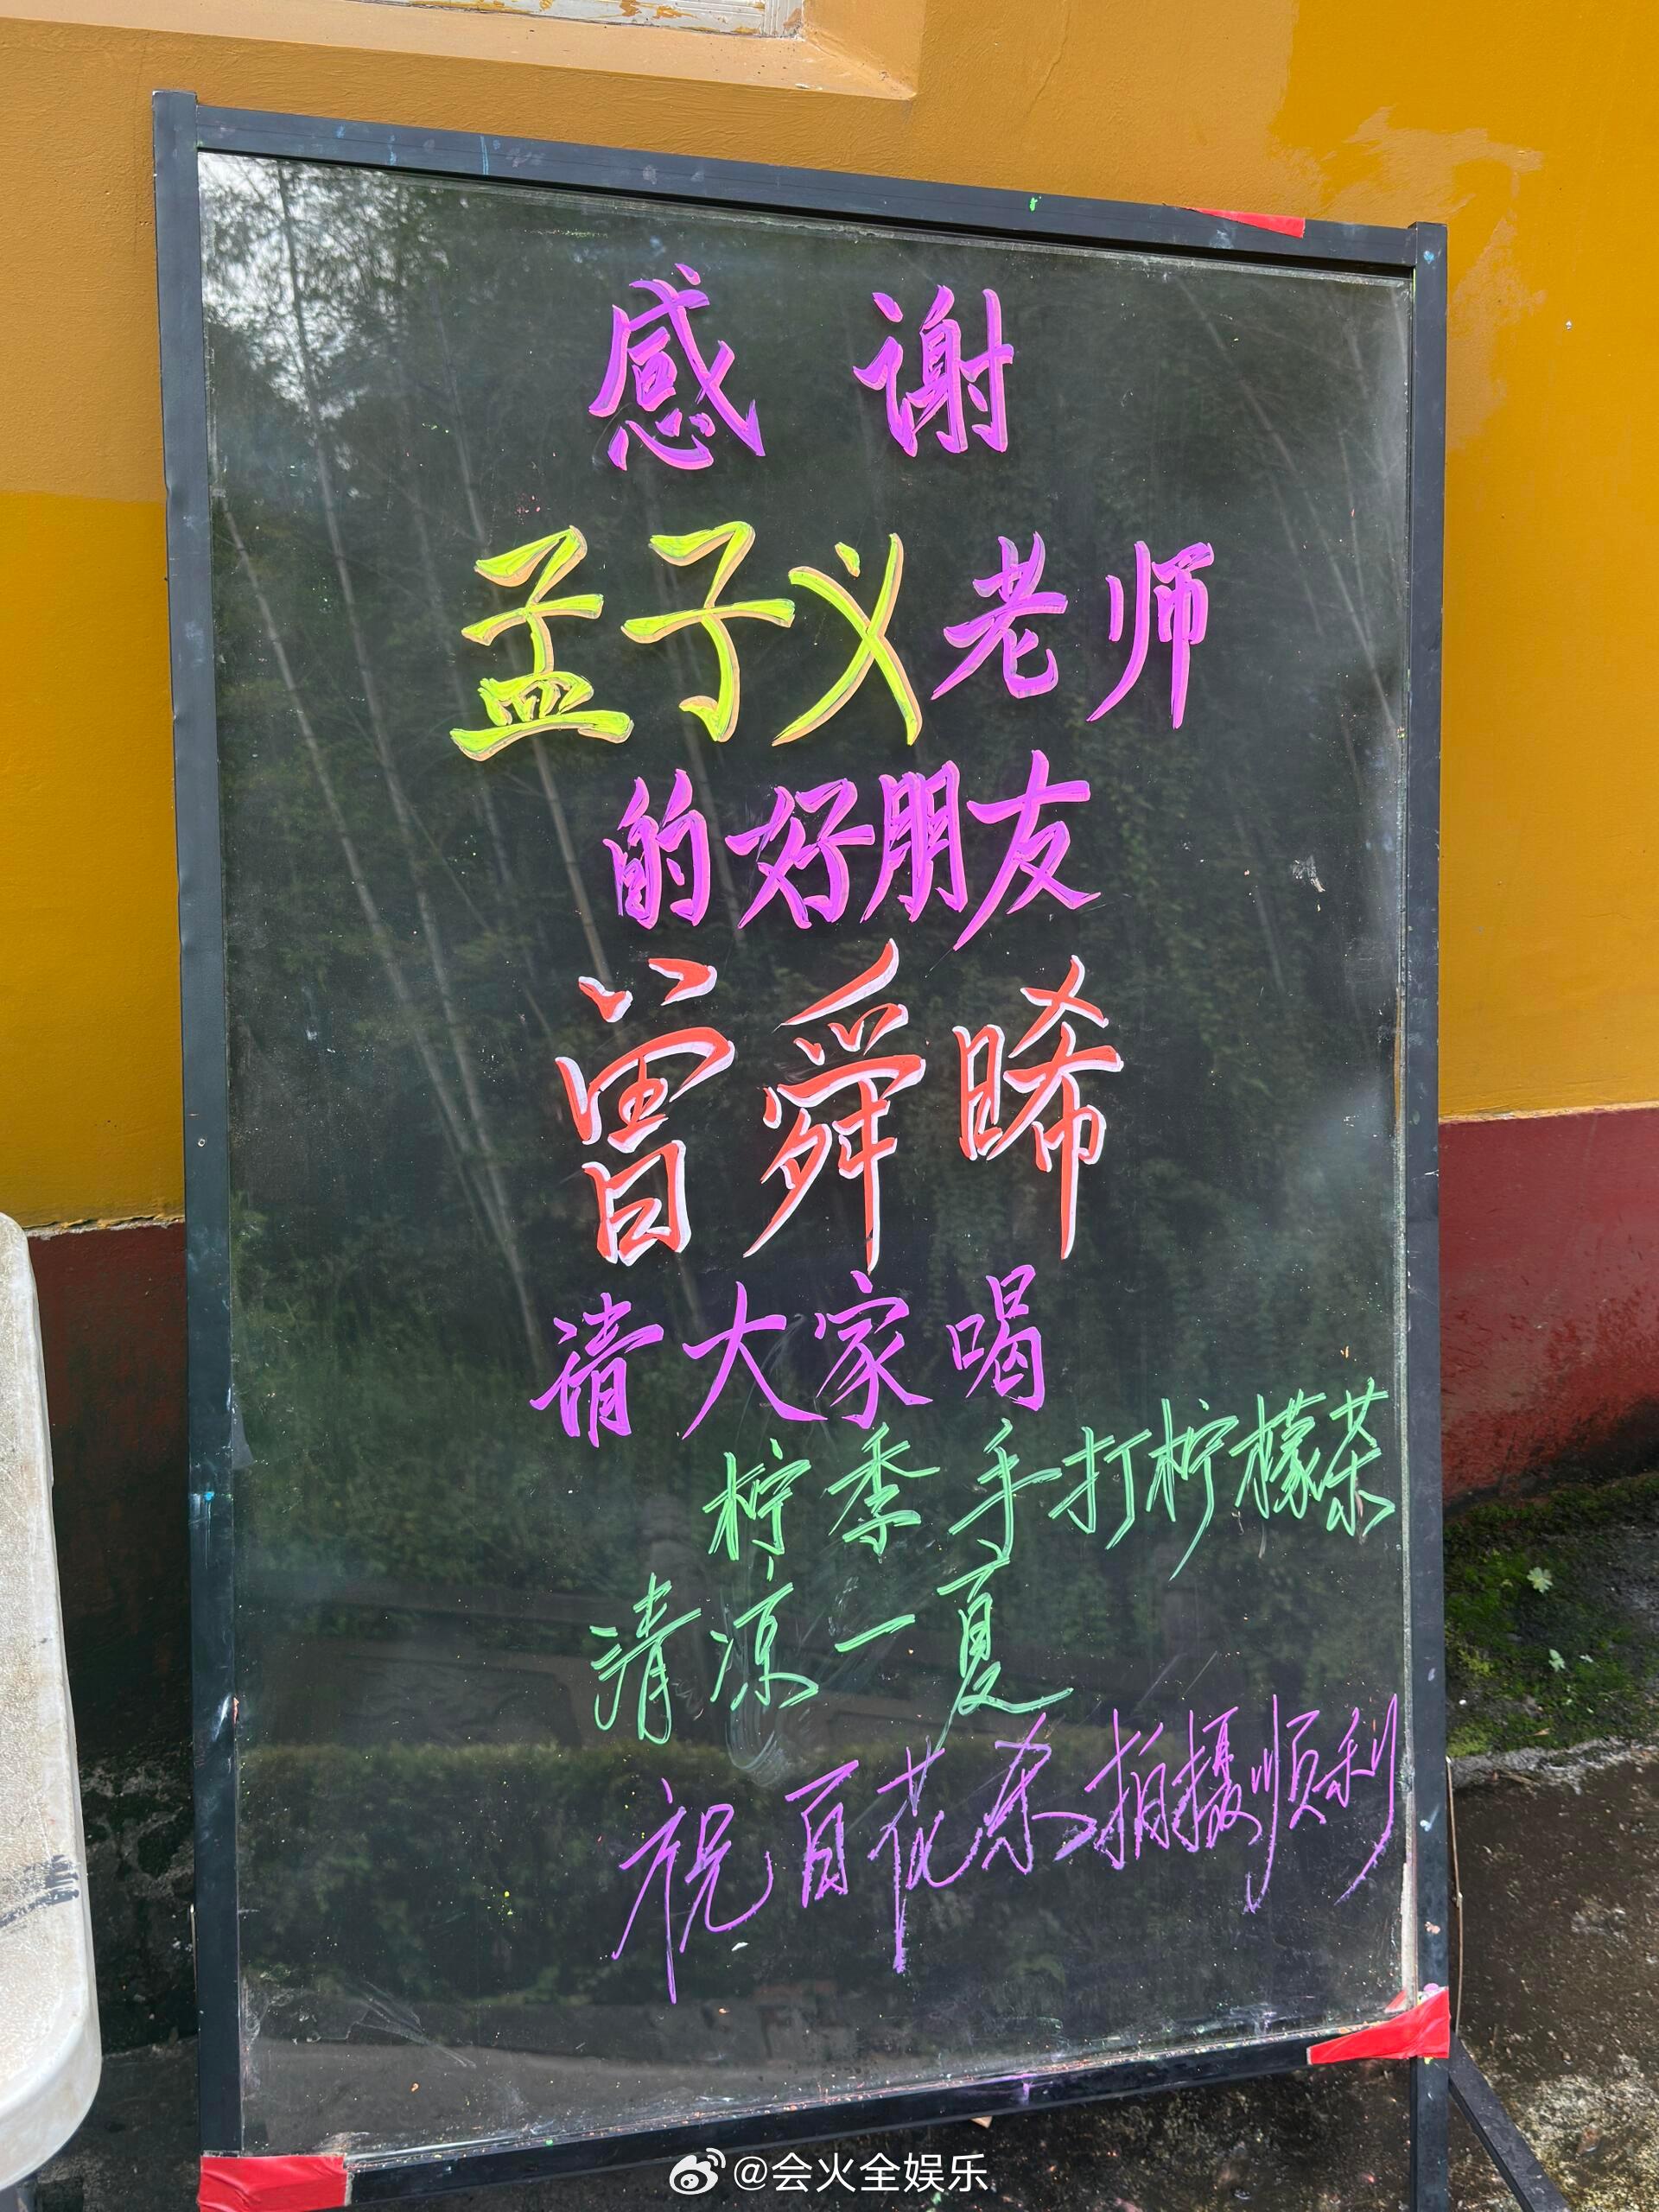 感谢
孟子义老师
的好朋友
曾舜晞
请大家喝
柠季手打柠檬茶
清凉一夏
祝百花杀拍摄顺利
@会火全娱乐